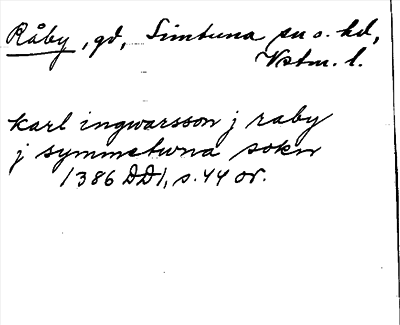 Råby, gd, Simtuna sn o. hd,
Vstm. l.
Karl ingwarsson j raby
j symmetuna sokn
1386 DD1, s. 44 or.